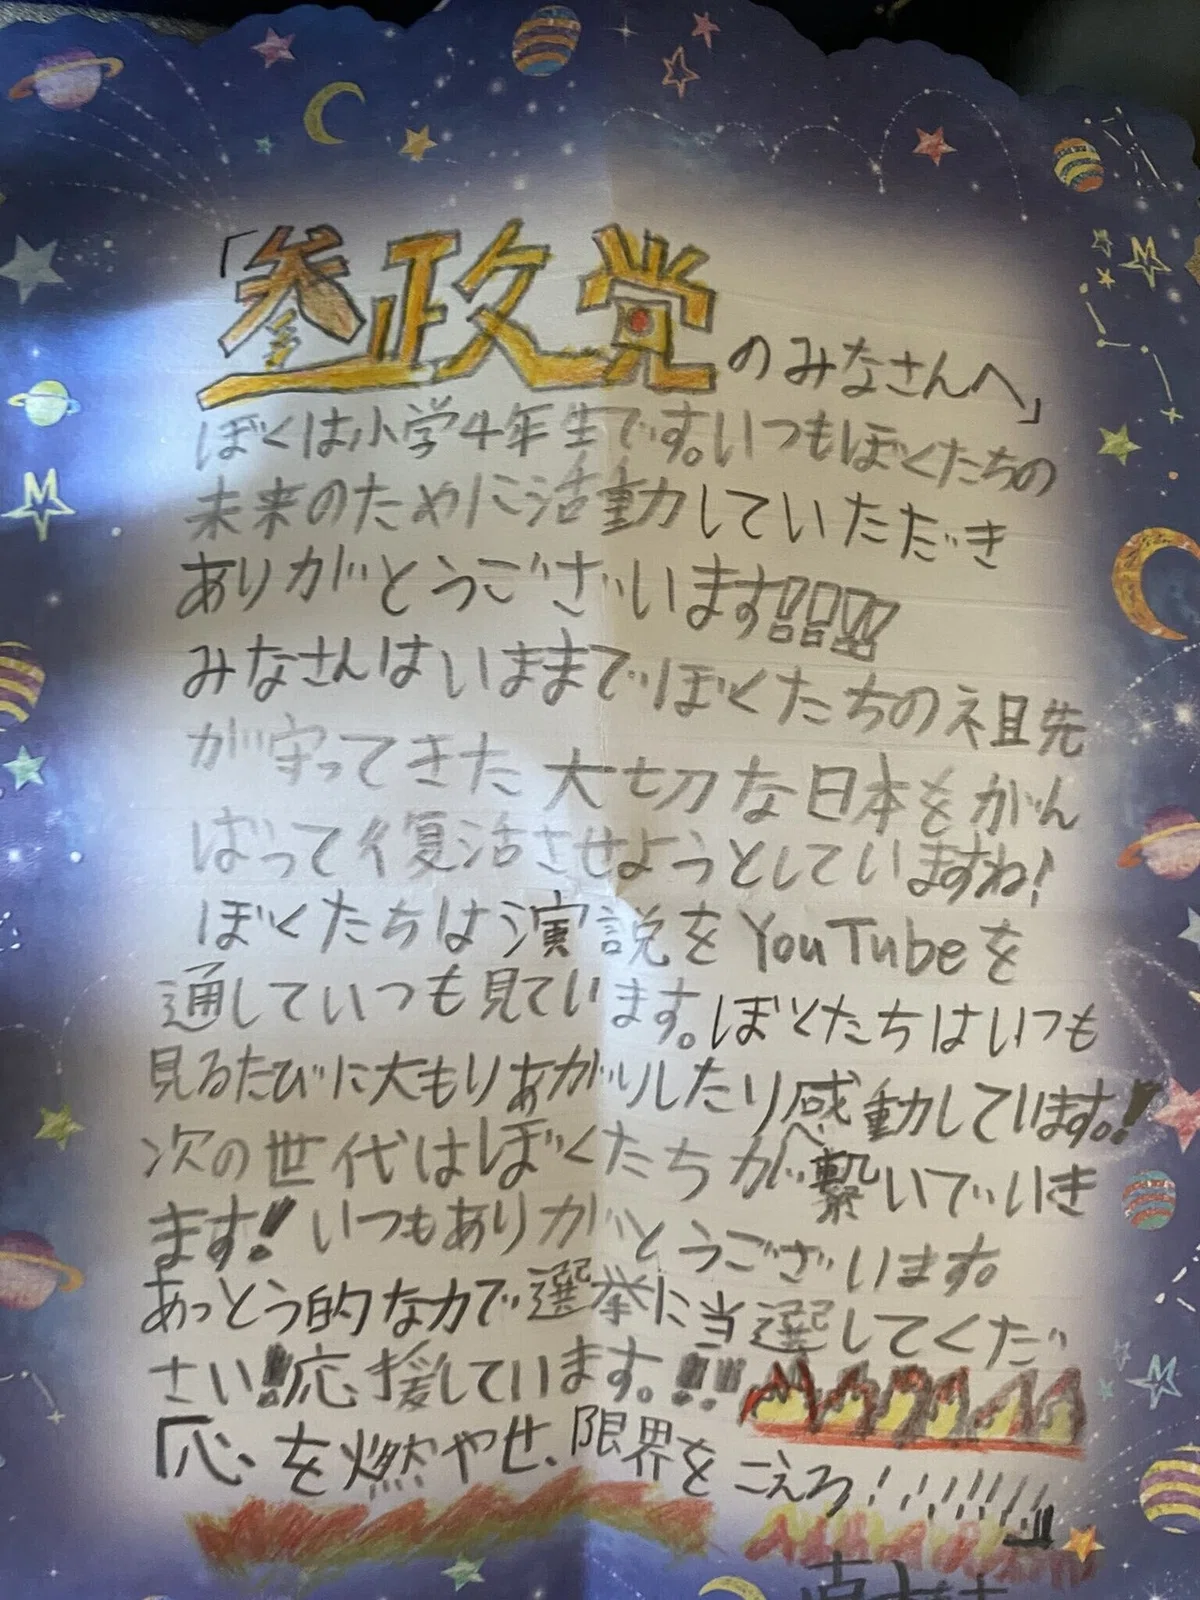 「参政党のみなさんへ」
ぼくは小学4年生です。いつもぼくたちの
未来のために活動していただき
ありがとうございます!!!!
みなさんはいままでぼくたちの祖先
が守ってきた大切な日本をがん
ばって復活させようとしていますね!
ぼくたちは演説をYouTubeを
通していつも見ています。ぼくたちはいつも
見るたびに大もりあがりしたり感動しています。!
次の世代はぼくたちが繋いでいき
ます!いつもありがとうございます。
あっとう的な力で選挙に当選してくだ
さい!!応援しています。!!!
「心を燃やせ、限界をこえろ!!!!!!!!」